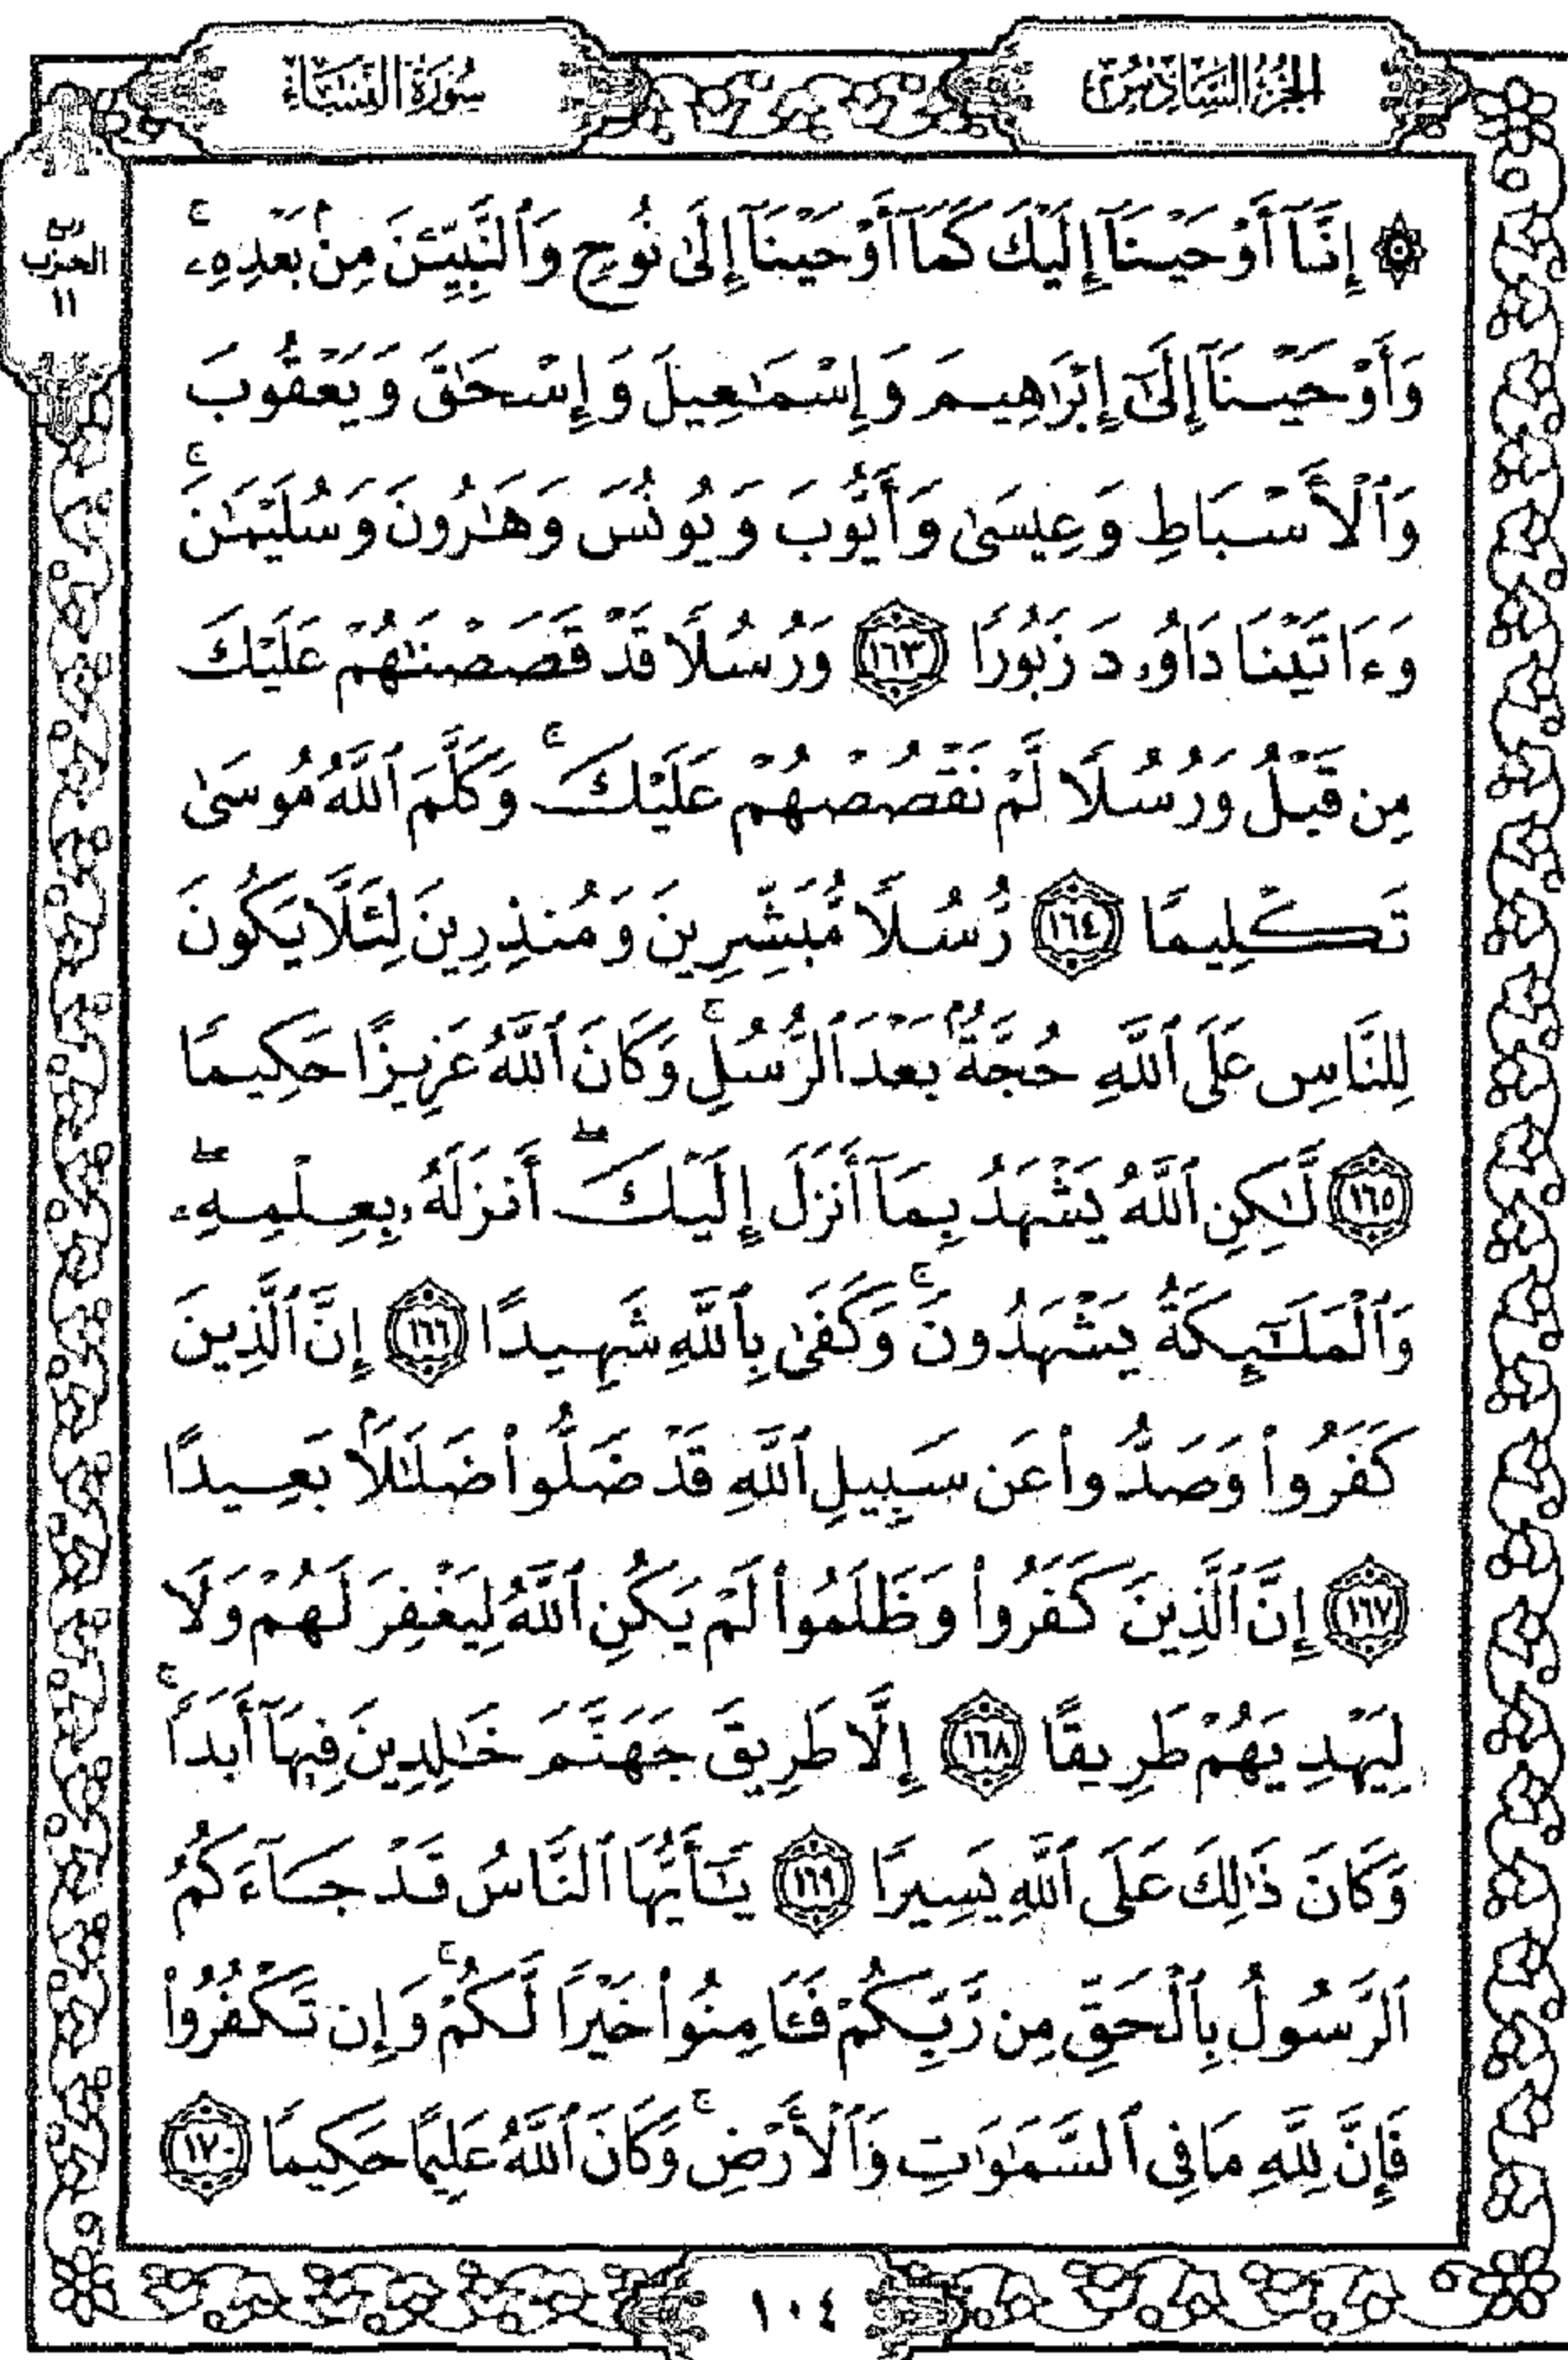 الجزء السادس
سورة النساء
ربع
الحزب
١١
۞ إِنَّآ أَوْحَيْنَآ إِلَيْكَ كَمَآ أَوْحَيْنَآ إِلَىٰ نُوحٍ وَٱلنَّبِيِّـۧنَ مِنۢ بَعْدِهِۦۚ
وَأَوْحَيْنَآ إِلَىٰٓ إِبْرَٰهِيمَ وَإِسْمَـٰعِيلَ وَإِسْحَـٰقَ وَيَعْقُوبَ
وَٱلْأَسْبَاطِ وَعِيسَىٰ وَأَيُّوبَ وَيُونُسَ وَهَـٰرُونَ وَسُلَيْمَـٰنَۚ
وَءَاتَيْنَا دَاوُۥدَ زَبُورًا ١٦٣ وَرُسُلًا قَدْ قَصَصْنَـٰهُمْ عَلَيْكَ
مِن قَبْلُ وَرُسُلًا لَّمْ نَقْصُصْهُمْ عَلَيْكَۚ وَكَلَّمَ ٱللَّهُ مُوسَىٰ
تَكْلِيمًا ١٦٤ رُّسُلًا مُّبَشِّرِينَ وَمُنذِرِينَ لِئَلَّا يَكُونَ
لِلنَّاسِ عَلَى ٱللَّهِ حُجَّةٌۢ بَعْدَ ٱلرُّسُلِۚ وَكَانَ ٱللَّهُ عَزِيزًا حَكِيمًا
١٦٥ لَّـٰكِنِ ٱللَّهُ يَشْهَدُ بِمَآ أَنزَلَ إِلَيْكَۖ أَنزَلَهُۥ بِعِلْمِهِۦۖ
وَٱلْمَلَـٰٓئِكَةُ يَشْهَدُونَۚ وَكَفَىٰ بِٱللَّهِ شَهِيدًا ١٦٦ إِنَّ ٱلَّذِينَ
كَفَرُوا۟ وَصَدُّوا۟ عَن سَبِيلِ ٱللَّهِ قَدْ ضَلُّوا۟ ضَلَـٰلًۢا بَعِيدًا
١٦٧ إِنَّ ٱلَّذِينَ كَفَرُوا۟ وَظَلَمُوا۟ لَمْ يَكُنِ ٱللَّهُ لِيَغْفِرَ لَهُمْ وَلَا
لِيَهْدِيَهُمْ طَرِيقًا ١٦٨ إِلَّا طَرِيقَ جَهَنَّمَ خَـٰلِدِينَ فِيهَآ أَبَدًاۚ
وَكَانَ ذَٰلِكَ عَلَى ٱللَّهِ يَسِيرًا ١٦٩ يَـٰٓأَيُّهَا ٱلنَّاسُ قَدْ جَآءَكُمُ
ٱلرَّسُولُ بِٱلْحَقِّ مِن رَّبِّكُمْ فَـَٔامِنُوا۟ خَيْرًا لَّكُمْۚ وَإِن تَكْفُرُوا۟
فَإِنَّ لِلَّهِ مَا فِى ٱلسَّمَـٰوَٰتِ وَٱلْأَرْضِۚ وَكَانَ ٱللَّهُ عَلِيمًا حَكِيمًا ١٧٠
١٠٤